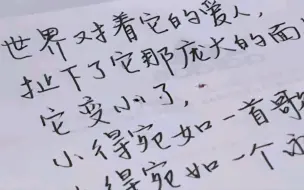 世界对着它的爱人，
扯下了它那庞大的面
它变小了，
小得宛如一首歌
小得宛如一个永